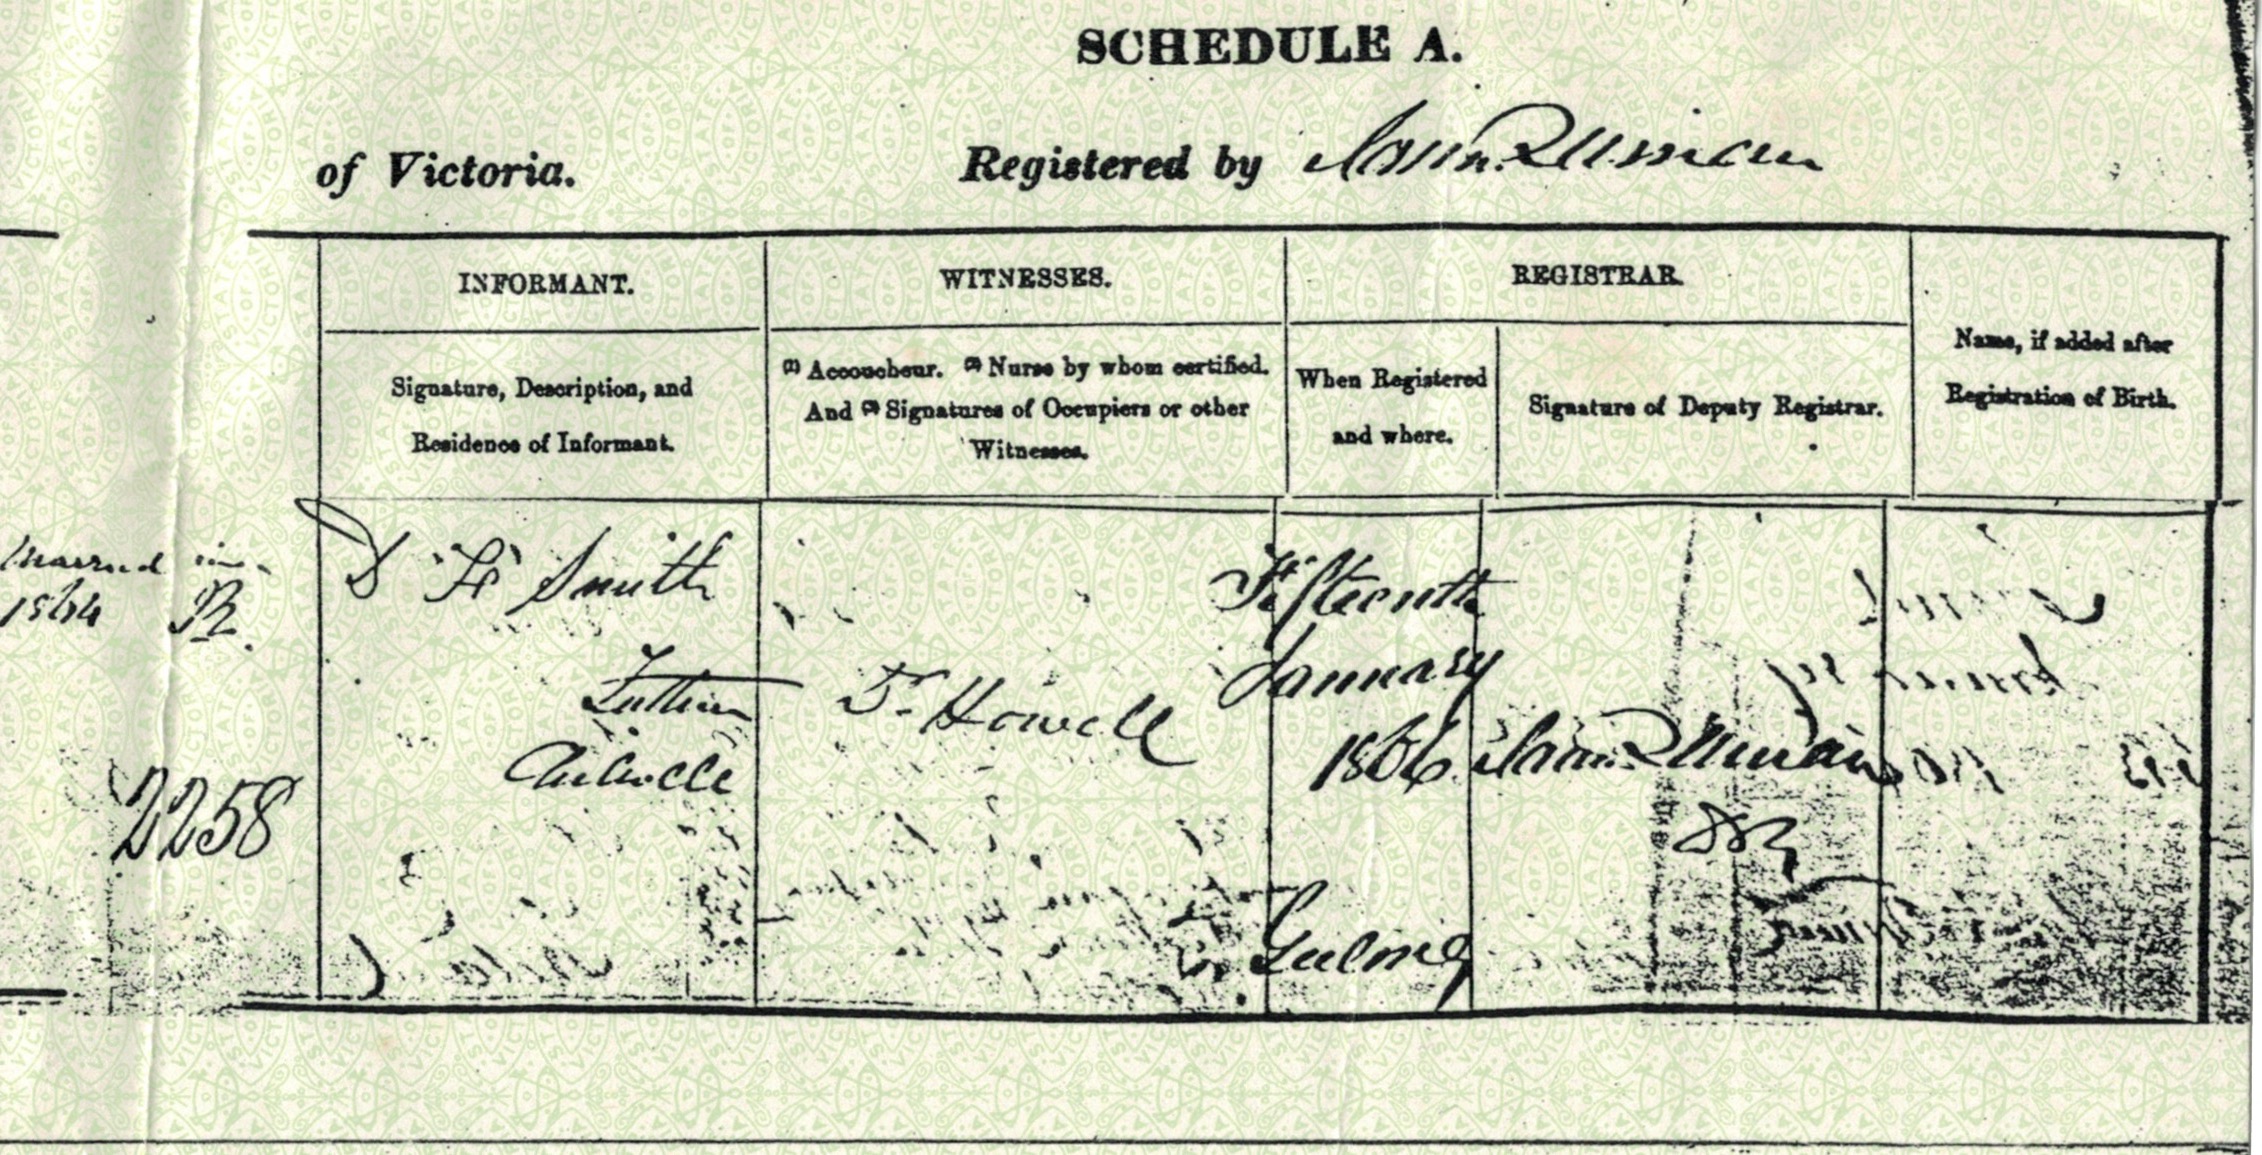 SCHEDULE A.
of Victoria. Registered by
INFORMANT. WITNESSES. REGISTRAR.
Signature, Description, and
Residence of Informant.
(1) Accoucheur. (2) Nurse by whom certified.
And (3) Signatures of Occupiers or other
Witnesses.
When Registered
and where.
Signature of Deputy Registrar.
Name, if added after
Registration of Birth.
Married in
1864
2258
D H Smith
Father
Howell
Fifteenth
January
1866